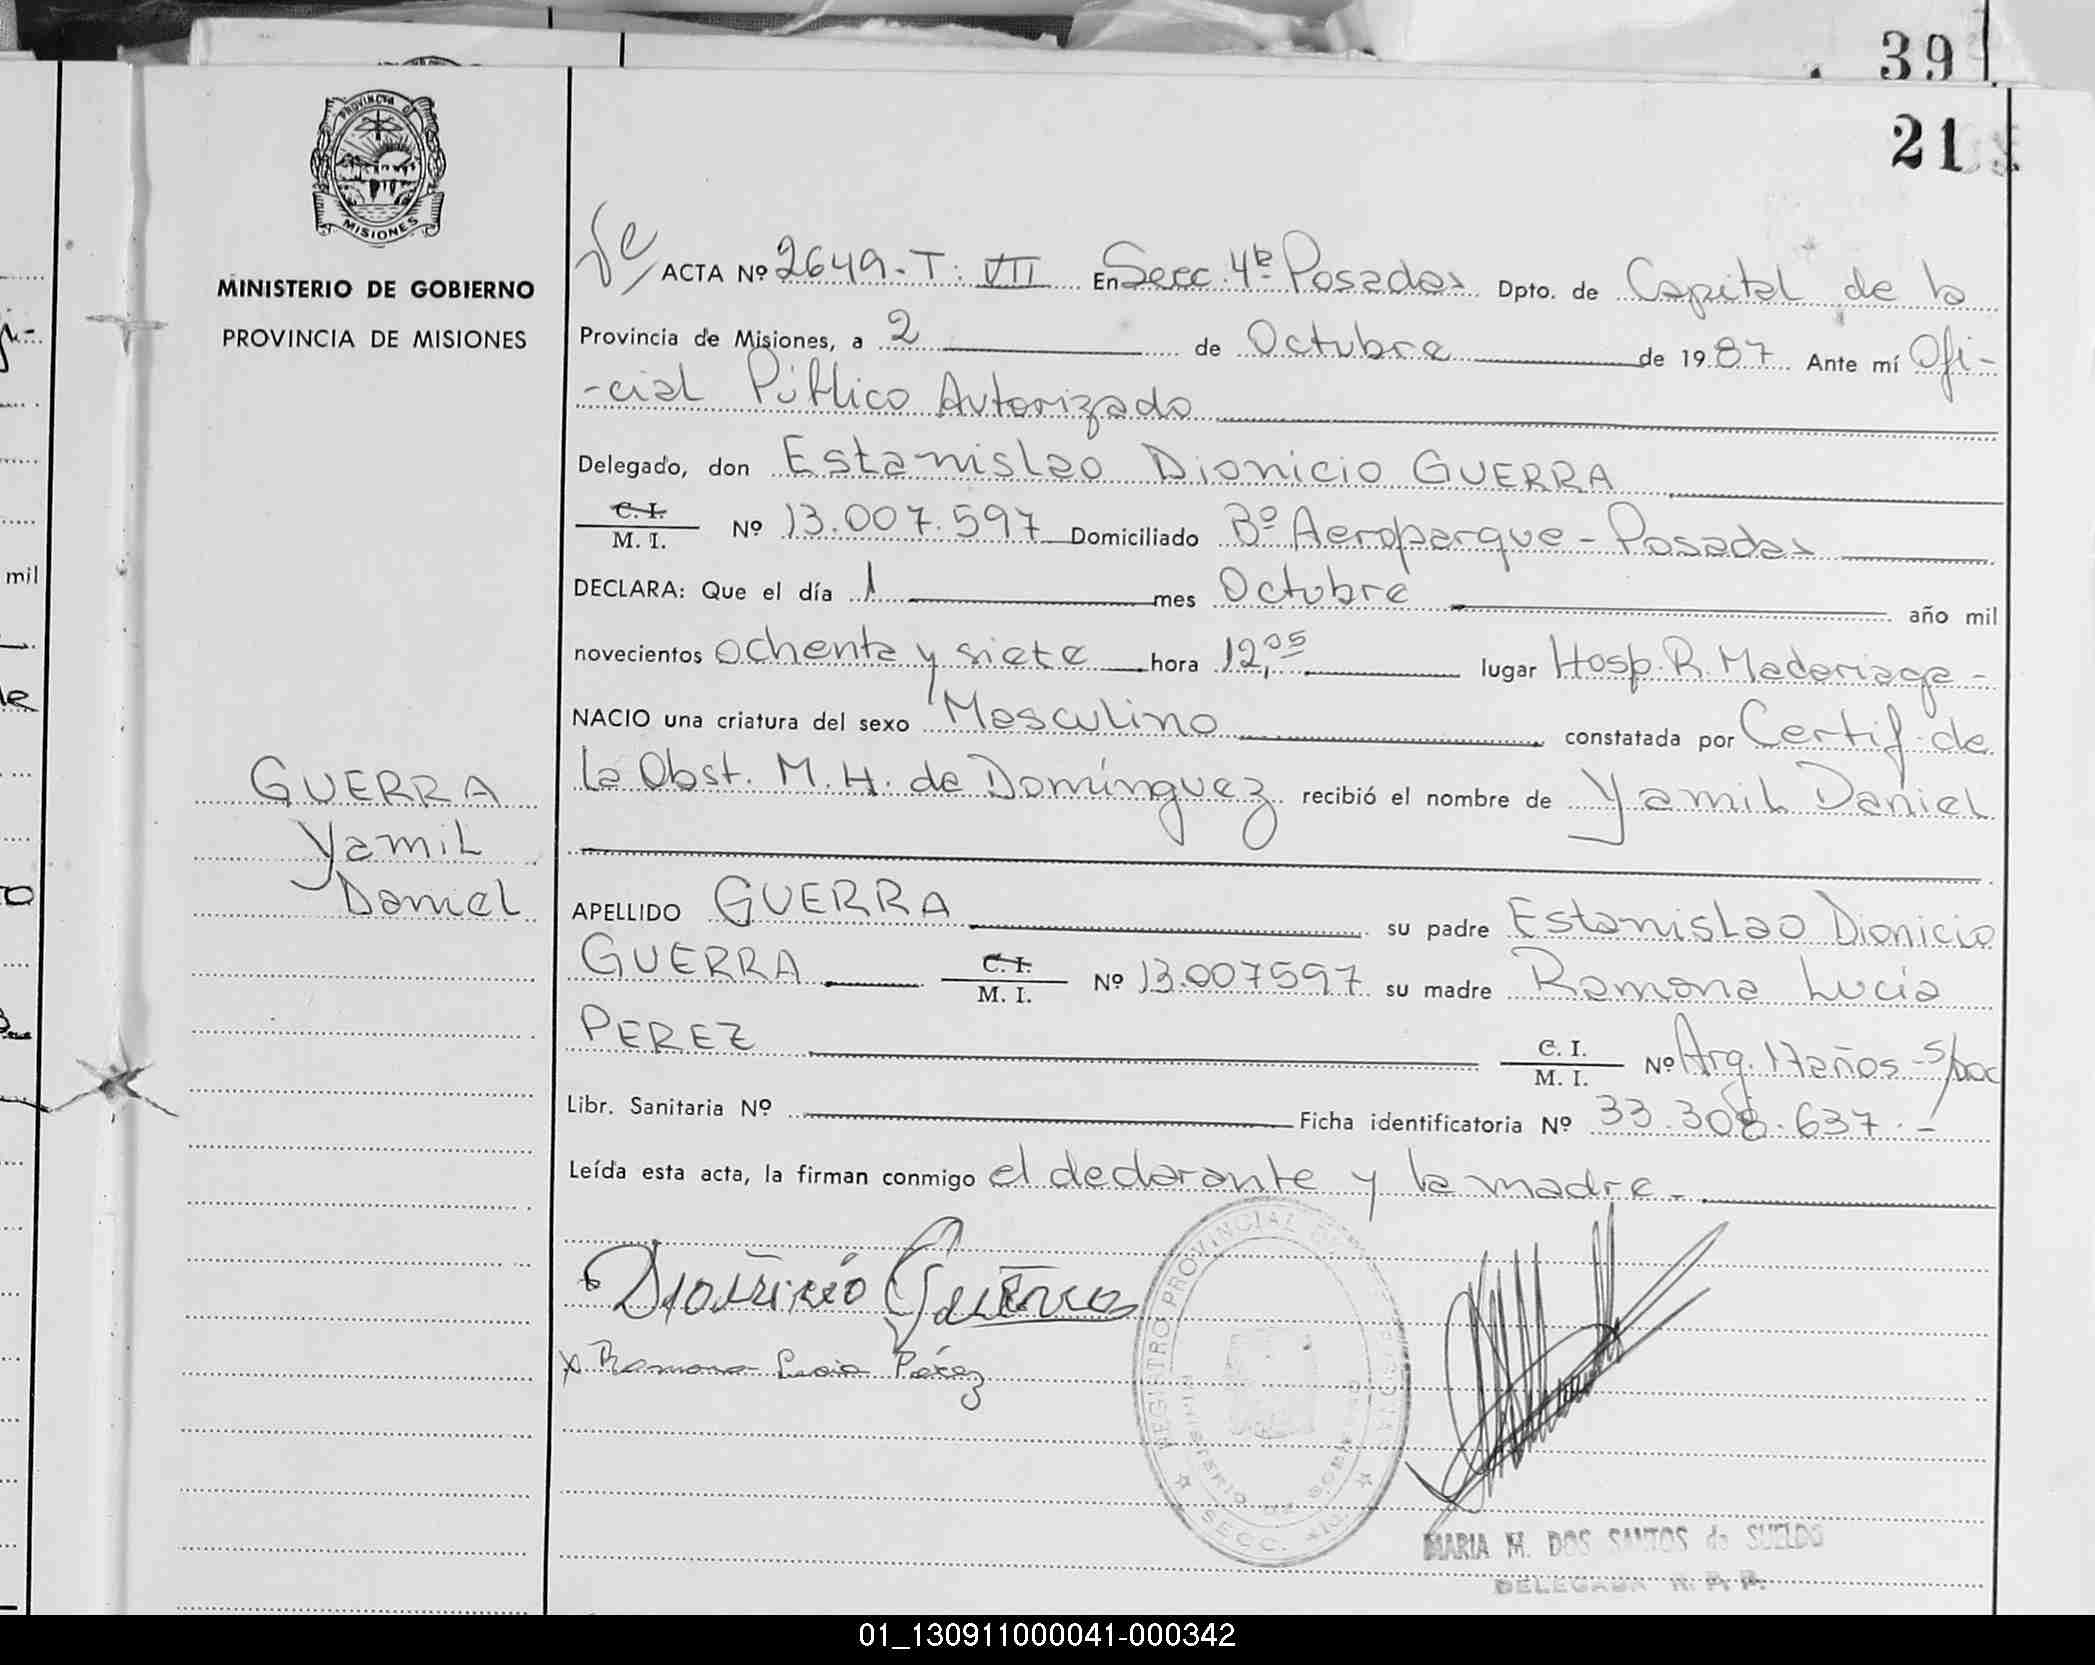 39
21
PROVINCIA DE
MISIONES
MINISTERIO DE GOBIERNO
PROVINCIA DE MISIONES
ACTA Nº 2649-T: VII En Secc. 4ª Posadas Dpto. de Capital de la
Provincia de Misiones, a 2 de Octubre de 1987 Ante mí Ofi-
-cial Público Autorizado
Delegado, don Estanislao Dionicio GUERRA
C. I.
M. I. Nº 13.007.597 Domiciliado Bº Aeroparque - Posadas
DECLARA: Que el día 1 mes Octubre año mil
novecientos ochenta y siete hora 12,05 lugar Hosp. R. Madariaga -
NACIO una criatura del sexo Masculino constatada por Certif. de
la Obst. M. H. de Domínguez recibió el nombre de Yamil Daniel
GUERRA
Yamil
Daniel
APELLIDO GUERRA su padre Estanislao Dionicio
GUERRA C. I.
M. I. Nº 13.007597 su madre Ramona Lucia
PEREZ C. I.
M. I. Nº Arg. 17 años - s/doc
Libr. Sanitaria Nº Ficha identificatoria Nº 33.308.637.-
Leída esta acta, la firman conmigo el declarante y la madre.-
x Ramona Lucia Pérez
REGISTRO PROVINCIAL
MINISTERIO DE GOBIERNO
SECC.
MARIA M. DOS SANTOS de SUELDO
DELEGADA R. P. P.
mil
01_130911000041-000342